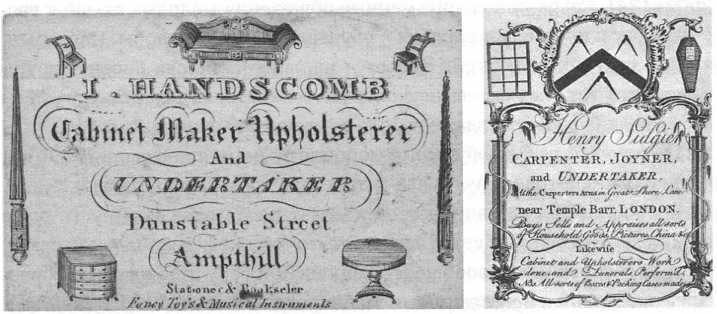 I. HANDSCOMB
Cabinet Maker Upholsterer
And
UNDERTAKER
Dunstable Street
Ampthill
Stationer & Bookseler
Fancy Toy's & Musical Instruments
Henry Sidgier
CARPENTER, JOYNER,
and UNDERTAKER.
At the Carpenters Arms in Great Shere Lane
near Temple Barr, LONDON.
Buys Sells and Appraises all sorts
of Household Goods, Pictures, China &c
Likewise
Cabinet and Upholsterers Work
done, and Funerals Perform'd
NB. All sorts of Boxes & Packing Cases made